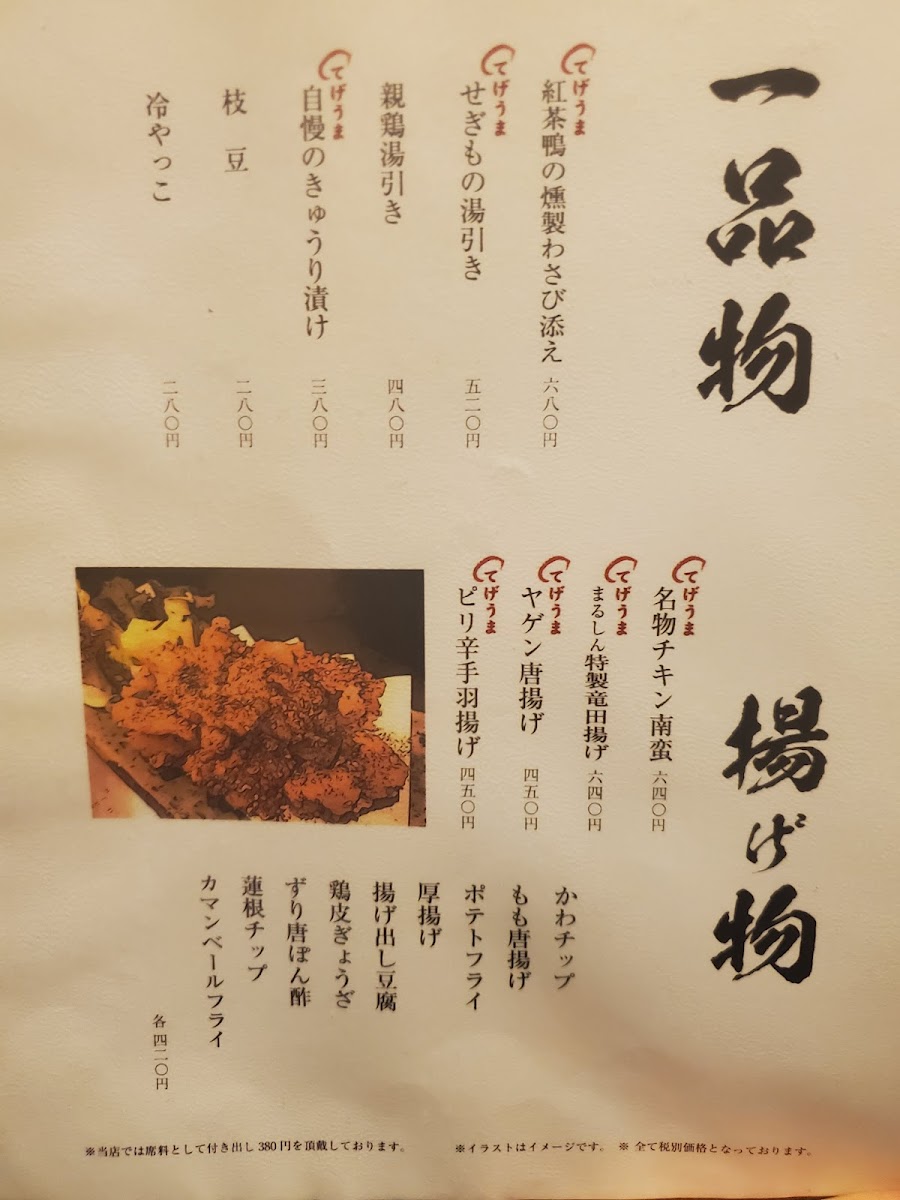 一品物
てげうま
紅茶鴨の燻製わさび添え 六八〇円
てげうま
せぎもの湯引き 五二〇円
親鶏湯引き 四八〇円
てげうま
自慢のきゅうり漬け 三八〇円
枝豆 二八〇円
冷やっこ 二八〇円
揚げ物
てげうま
名物チキン南蛮 六四〇円
てげうま
まるしん特製竜田揚げ 六四〇円
てげうま
ヤゲン唐揚げ 四五〇円
てげうま
ピリ辛手羽揚げ 四五〇円
かわチップ
もも唐揚げ
ポテトフライ
厚揚げ
揚げ出し豆腐
鶏皮ぎょうざ
ずり唐ぽん酢
蓮根チップ
カマンベールフライ
各四二〇円
※当店では席料として付き出し380円を頂戴しております。
※イラストはイメージです。 ※全て税別価格となっております。